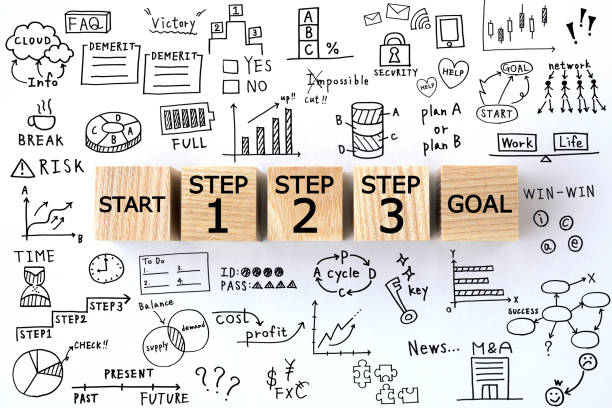 FAQ
Victory
1
2
3
A
B
C
%
!!!
CLOUD
Info
DEMERIT
DEMERIT
YES
NO
Impossible
cut!!
SECURITY
HELP
HELP
GOAL
START
network
BREAK
D
C
A
FULL
up!!
A
B
C
D
plan A
or
plan B
Work
Life
RISK
!
START
STEP
1
STEP
2
STEP
3
GOAL
A
B
WIN-WIN
i
c
a
e
TIME
To Do
1.
2.
3.
4.
ID:
PASS:
P
A cycle D
C
key
Y
X
STEP1
STEP2
STEP3
Balance
supply
demand
cost
profit
SUCCESS
?
CHECK!!
PRESENT
PAST
FUTURE
???
$ ¥ €
FX
News...
M&A
W